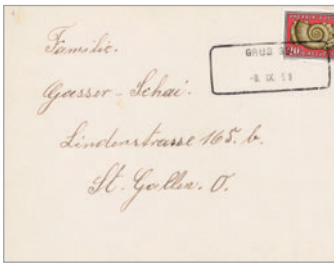 Familie.
Gasser-Schai.
Lindenstrasse 165. b.
St. Gallen. O.
GRUB
20